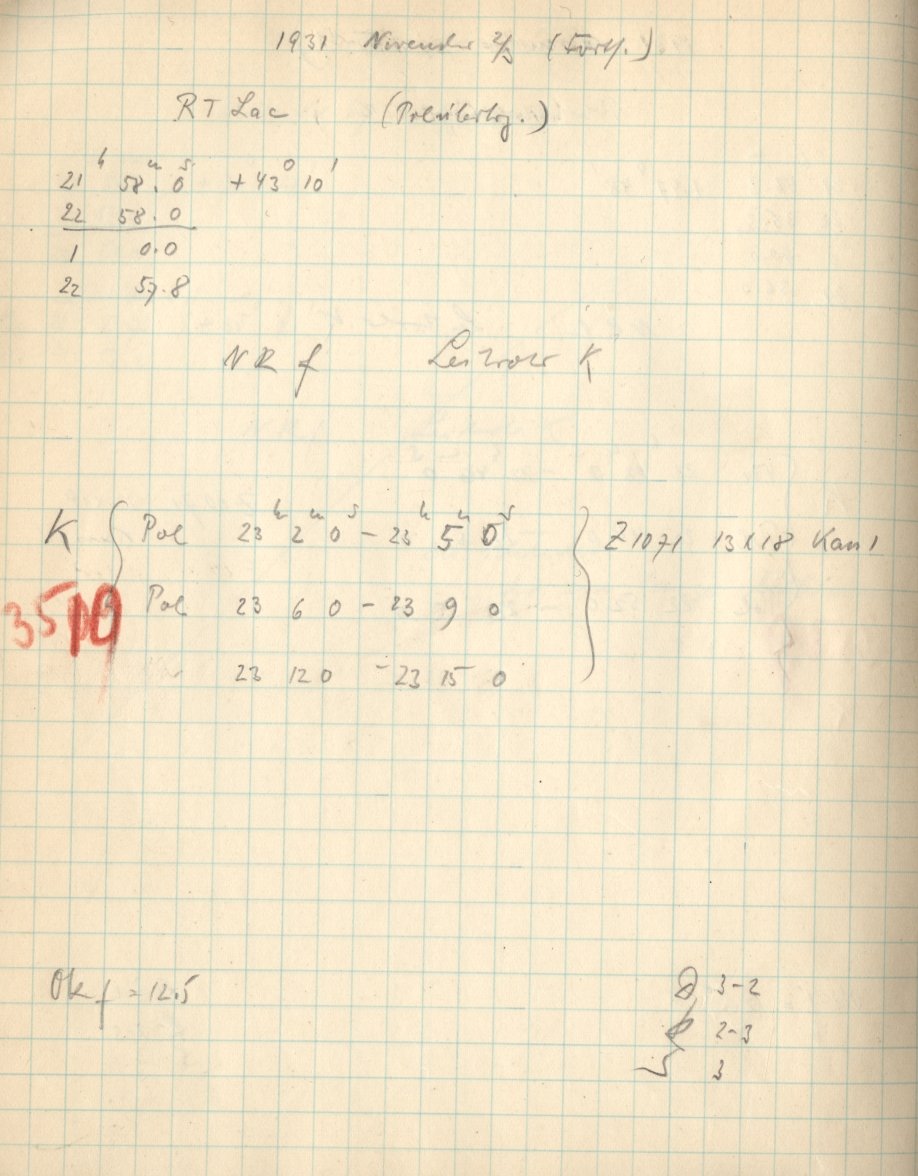 1931 November 2/3 (Fortf.)
RT Lac (Polübertrg.)
21h 58m.0s +43° 10'
22 58.0
1 0.0
22 57.8
NR f Leitrohr K
K { Pol 23h 2m 0s - 23h 5m 0s } Z1071 13x18 Kam 1
3510 Pol 23 6 0 - 23 9 0
23 12 0 - 23 15 0
Ok f = 12.5
D 3-2
2-3
3